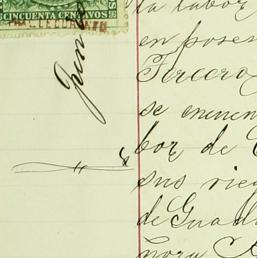 CINCUENTA CENTAVOS
Junio
la labor
en posen
Tercero
se encuen
bor de
sus rie
de Guada